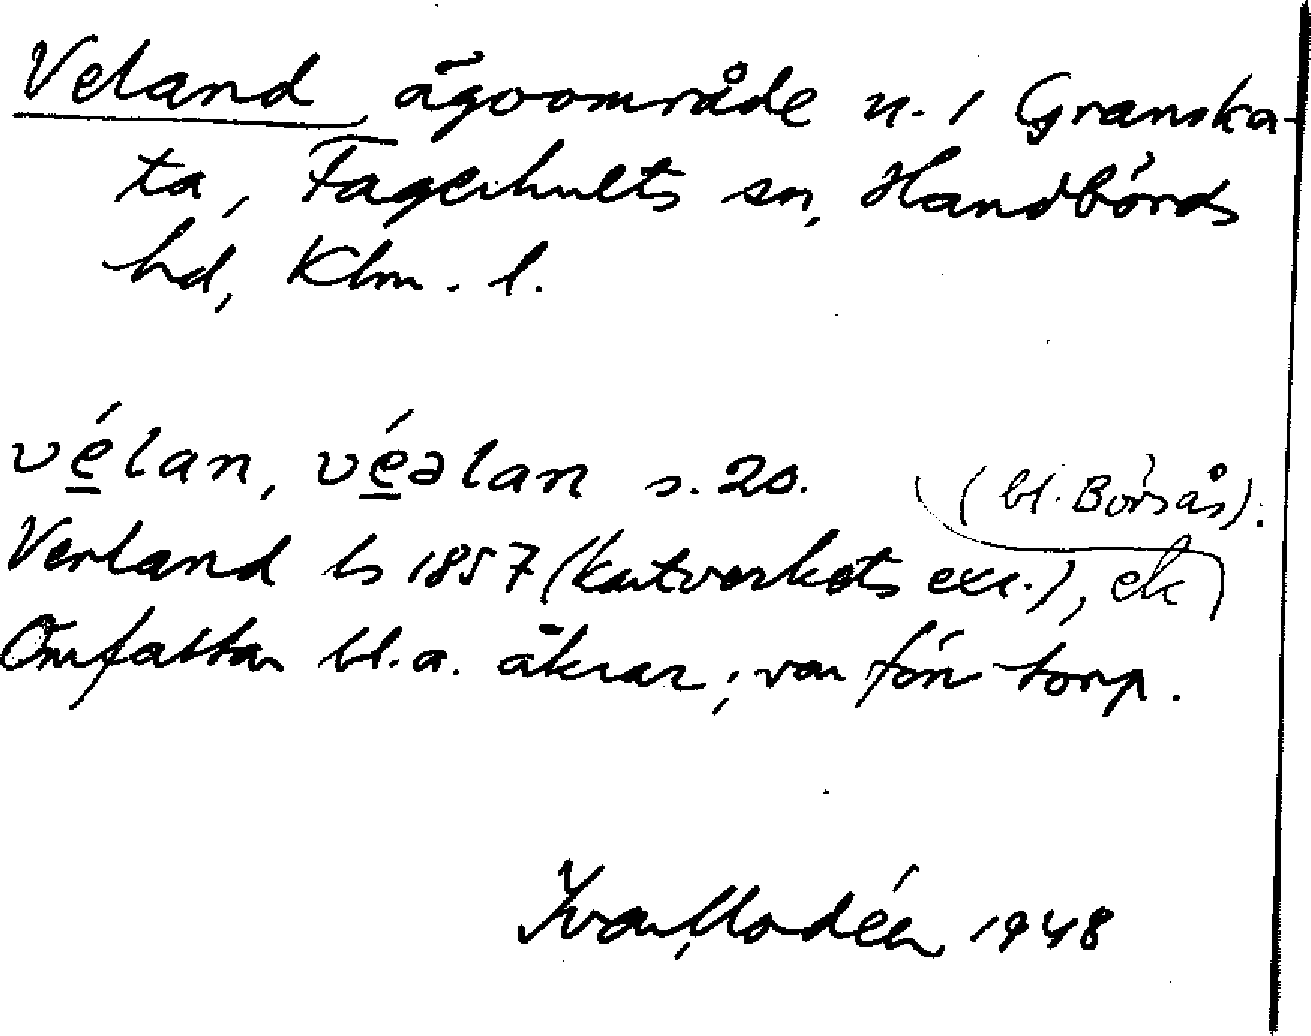 Veland ägoområde n. i Granska-
ta, Fagerhults sn, Handbörds
hd, Klm. l.
vé̱lan, vé̱əlan s. 2s. (bl. Börsås).
Verland ls 1857 (kartverkets exc.), ek
Omfattar bl.a. åkrar; var förr torp.
Ivar Modéer 1948